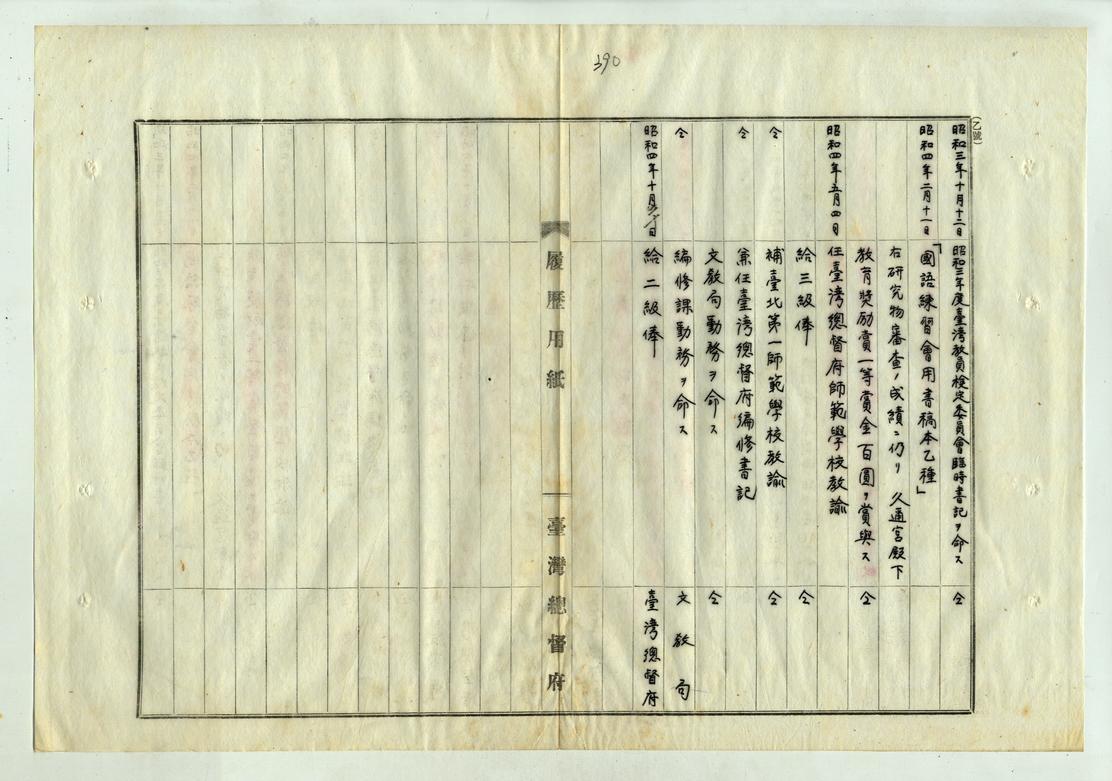 390
(乙號)
昭和三年十月十二日 昭和三年度臺灣教員檢定委員會臨時書記ヲ命ス 仝
昭和四年二月十一日 「國語練習會用書稿本乙種」
右研究物審查ノ成績ニ仍リ 久邇宮殿下
教育獎励賞一等賞金百圓ヲ賞與ス 仝
昭和四年五月四日 任臺灣總督府師範學校教諭
給三級俸 仝
仝 補臺北第一師範學校教諭 仝
仝 兼任臺灣總督府編修書記
文教局勤務ヲ命ス 仝
仝 編修課勤務ヲ命ス 文教局
昭和四年十月 日 給二級俸 臺灣總督府
履歷用紙
臺灣總督府